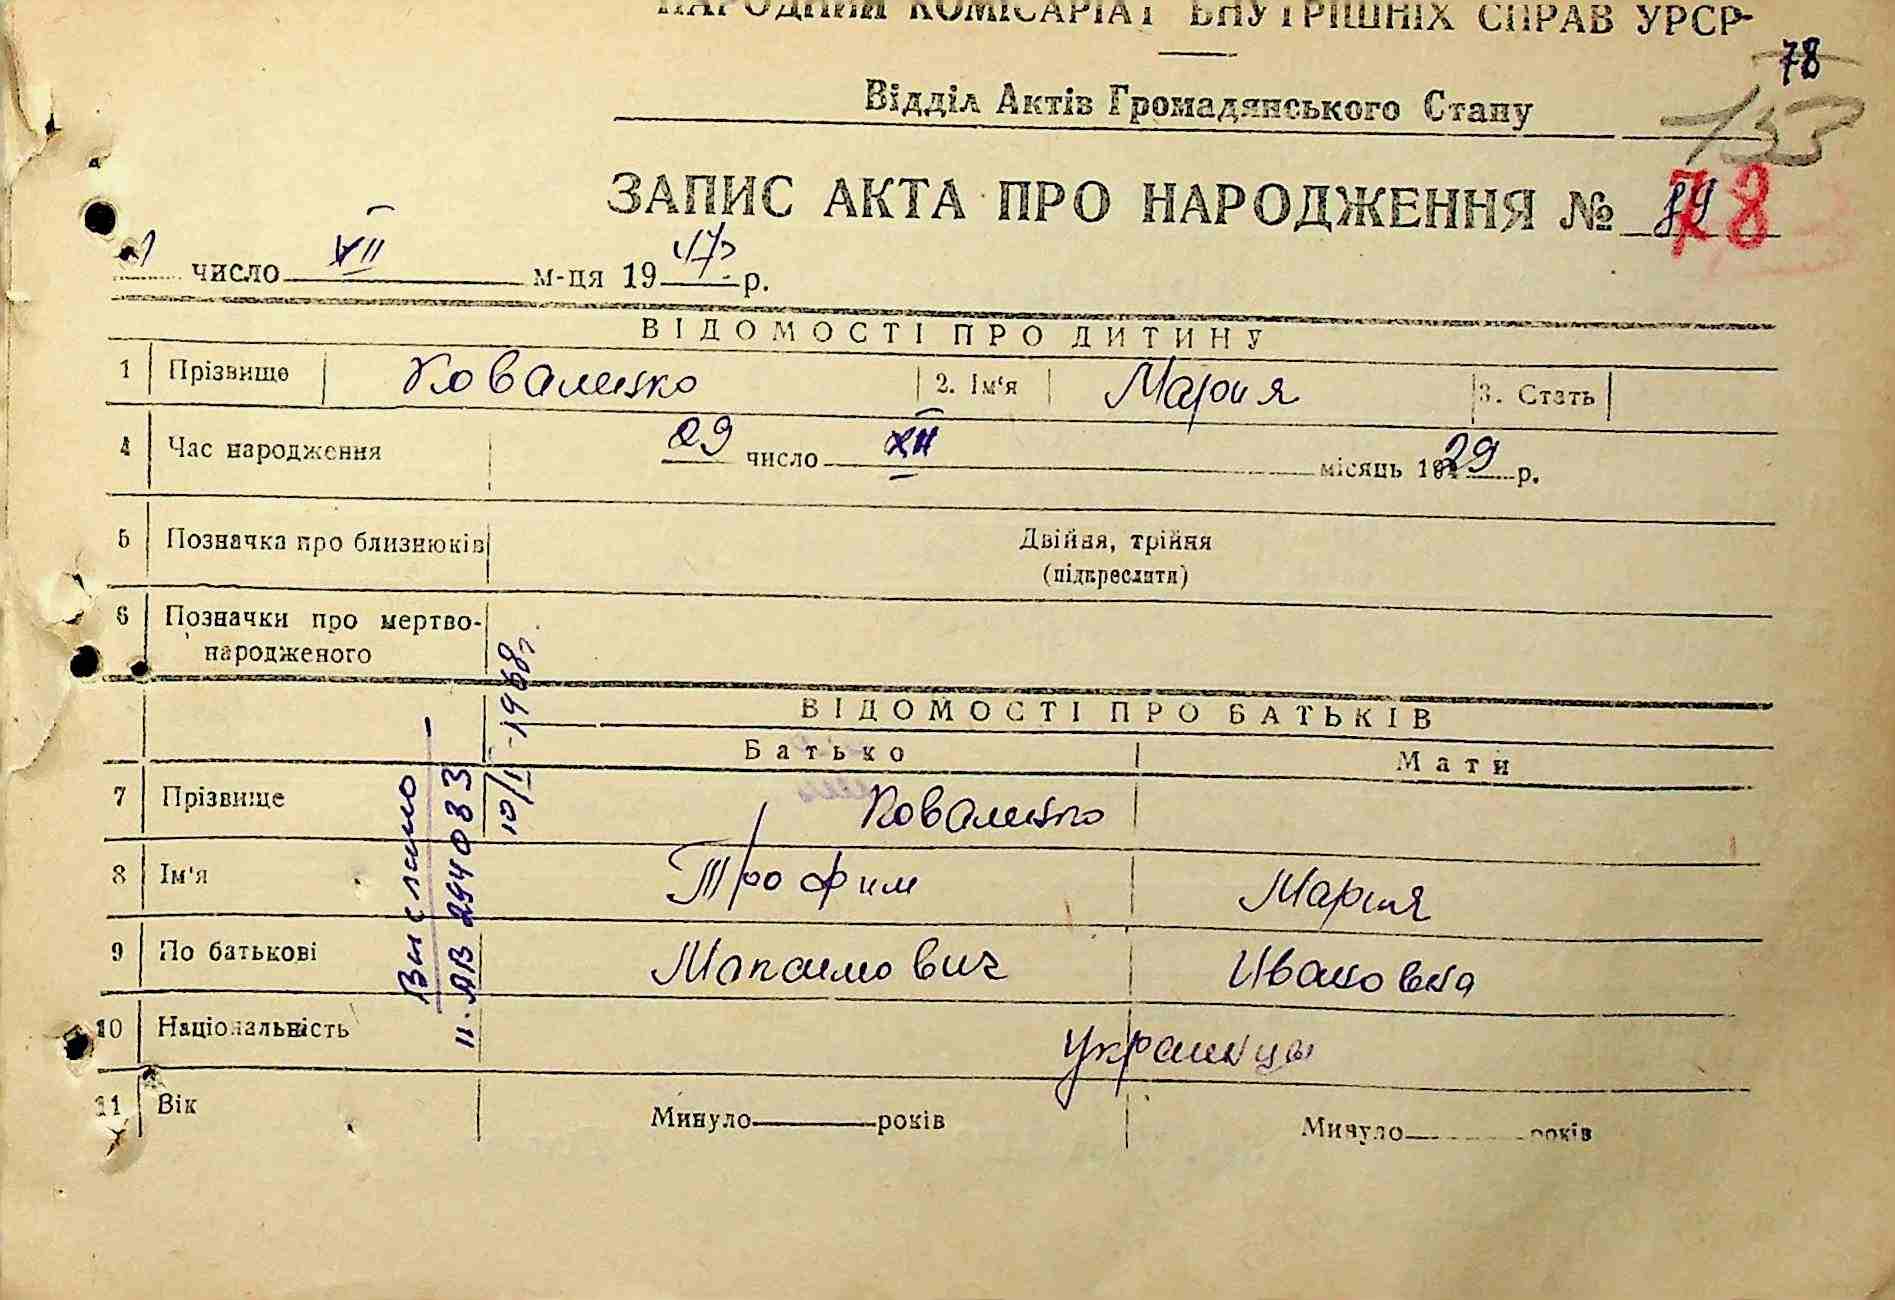 НАРОДНИЙ КОМІСАРІАТ ВНУТРІШНІХ СПРАВ УРСР
78
Відділ Актів Громадянського Стану
153
ЗАПИС АКТА ПРО НАРОДЖЕННЯ № 78
число VII м-ця 1947 р.
ВІДОМОСТІ ПРО ДИТИНУ
1 Прізвище Коваленко 2. Ім'я Мария 3. Стать
4 Час народження 29 число XII місяць 1929 р.
5 Позначка про близнюків Двійня, трійня
(підкреслити)
6 Позначки про мертво-
народженого
ВІДОМОСТІ ПРО БАТЬКІВ
Батько Мати
7 Прізвище Коваленко
8 Ім'я Трофим Мария
9 По батькові Максимович Ивановна
10 Національність украинцы
11 Вік Минуло років Минуло років
Выслано
II-АВ 294083
10/I-1968г.